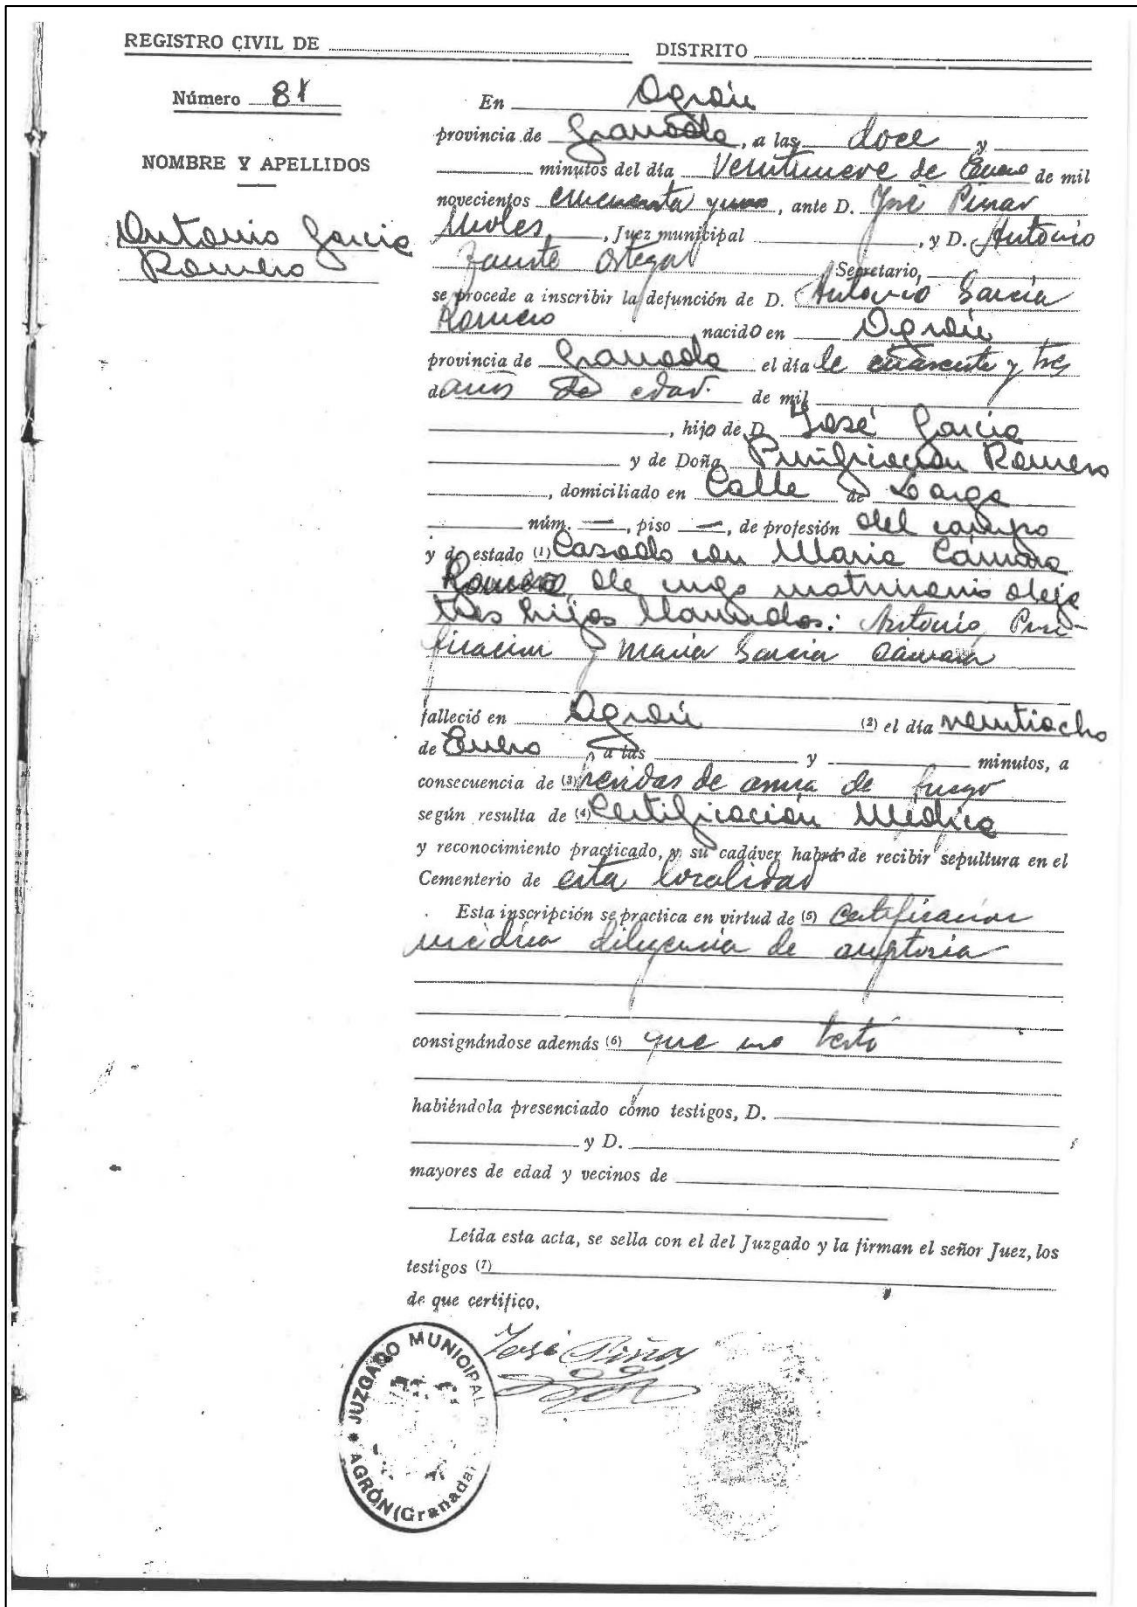 REGISTRO CIVIL DE
DISTRITO
Número 81
NOMBRE Y APELLIDOS
Antonio Garcia
Romero
En Agrón
provincia de Granada, a las doce y
minutos del día Veintinueve de Enero de mil
novecientos cincuenta y uno, ante D. José Pinar
Moles, Juez municipal, y D. Antonio
Fauste Ortega Secretario,
se procede a inscribir la defunción de D. Antonio García
Romero nacido en Agrón
provincia de Granada el día de cuarenta y tres
de años de edad. de mil
, hijo de D. José Garcia
y de Doña Purificación Romero
, domiciliado en Calle de Larga
núm. —, piso —, de profesión del campo
y de estado (1) Casado con Maria Cámara
Romero, de cuyo matrimonio deja
tres hijos llamados: Antonio, Puri-
ficacion y María García Cámara
falleció en Agrón (2) el día veintiocho
de Enero, a las y minutos, a
consecuencia de (3) heridas de arma de fuego
según resulta de (4) Certificación Médica
y reconocimiento practicado, y su cadáver habrá de recibir sepultura en el
Cementerio de esta localidad
Esta inscripción se practica en virtud de (5) Certificacion
medica diligencia de
consignándose además (6) que no testó
habiéndola presenciado como testigos, D.
y D.
mayores de edad y vecinos de
Leída esta acta, se sella con el del Juzgado y la firman el señor Juez, los
testigos (7)
de que certifico,
José Pinar
JUZGADO MUNICIPAL
AGRÓN (Granada)